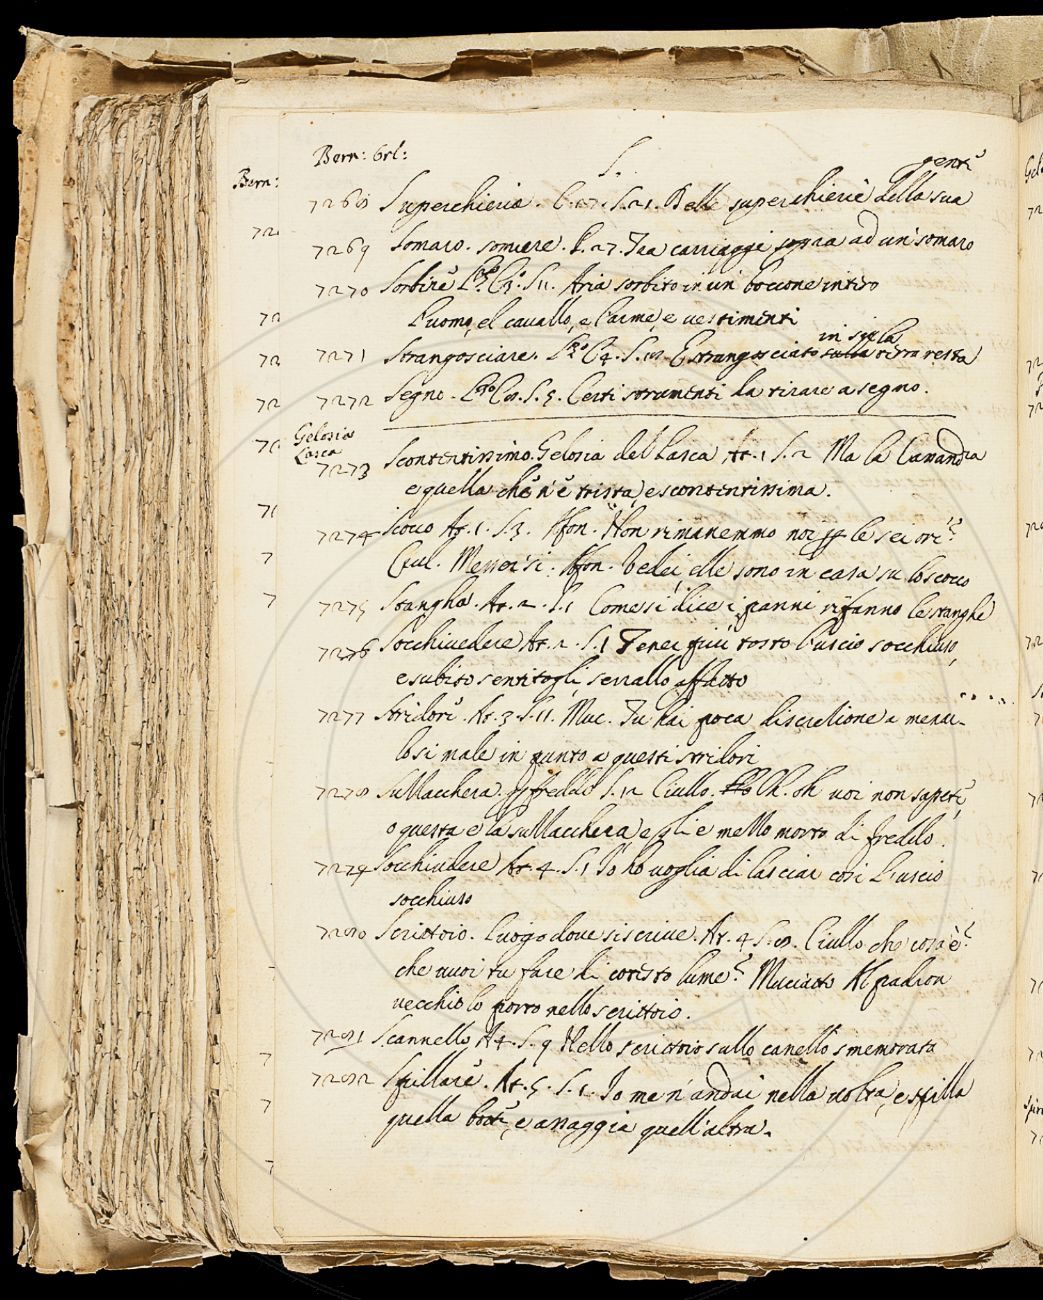 Bern: Orl:
S.
genti
7268 Superchieria. C. 27. S. 21. Belle superchierie della sua
7269 Somaro. somiere. C. 27. Tra carriaggi sopra ad un' somaro
7270 Sorbire C. 3. S. 11. Aria sorbito in un' boccone intiero
L'uomo, el cavallo, e l'arme, e vestimenti
in su la
7271 Strangosciare. C. 4. S. Estrangosciato sulla terra resta
7272 Segno. S. 5. Certi strumenti da tirare a segno.
Gelosia
Lasca
7273 Scontentissimo. Gelosia del Lasca At. 1 S. 2 Ma la Cassandra
e quella che n'è trista, e scontentissima.
7274 Scocco At. 1. S. 3. Alfon. Non rimanemmo noi le sei ore?
Ciul. Messer si. Alfon. Velei, elle sono in casa su lo scocco
7275 Stangha. At. 2. S. 1 Come si dice i panni rifanno le stanghe
7276 Socchiudere At. 2. S. 1 Tenei più tosto l'uscio socchiuso,
e subito sentitogli, serrallo affatto
7277 Stridori. At. 3. S. 11. Muc. Tu hai poca discretione a menar-
losi male in punto a questi stridori
7278 Sullacchera. S. 12 Ciullo. Oh. oh voi non sapete,
o questa e la sullacchera, egli e mezzo morto di freddo.
7279 Socchiudere At. 4. S. 1 Io ho voglia di lasciar così l'uscio
socchiuso
7280 Scrittoio. Luogo dove si scrive. At. 4 S. 8. Ciullo che cosa è?
che vuoi tu fare di cotesto lume? Muciatto Al padron
vecchio lo porto nello scrittoio.
7281 Scannello, At. 4. S. 9 Nello scrittoio sullo canello smemorata
7282 Spillare. At. 5. S. 1. Io me n' andai nella volta, e spilla
quella botte, e assaggia quell'altra.